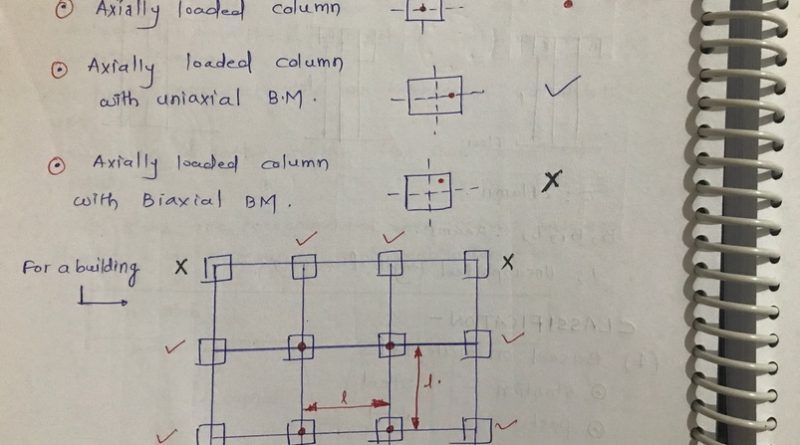 Axially loaded column
Axially loaded column
with uniaxial B.M.
Axially loaded column
with Biaxial BM.
For a building
l
l.